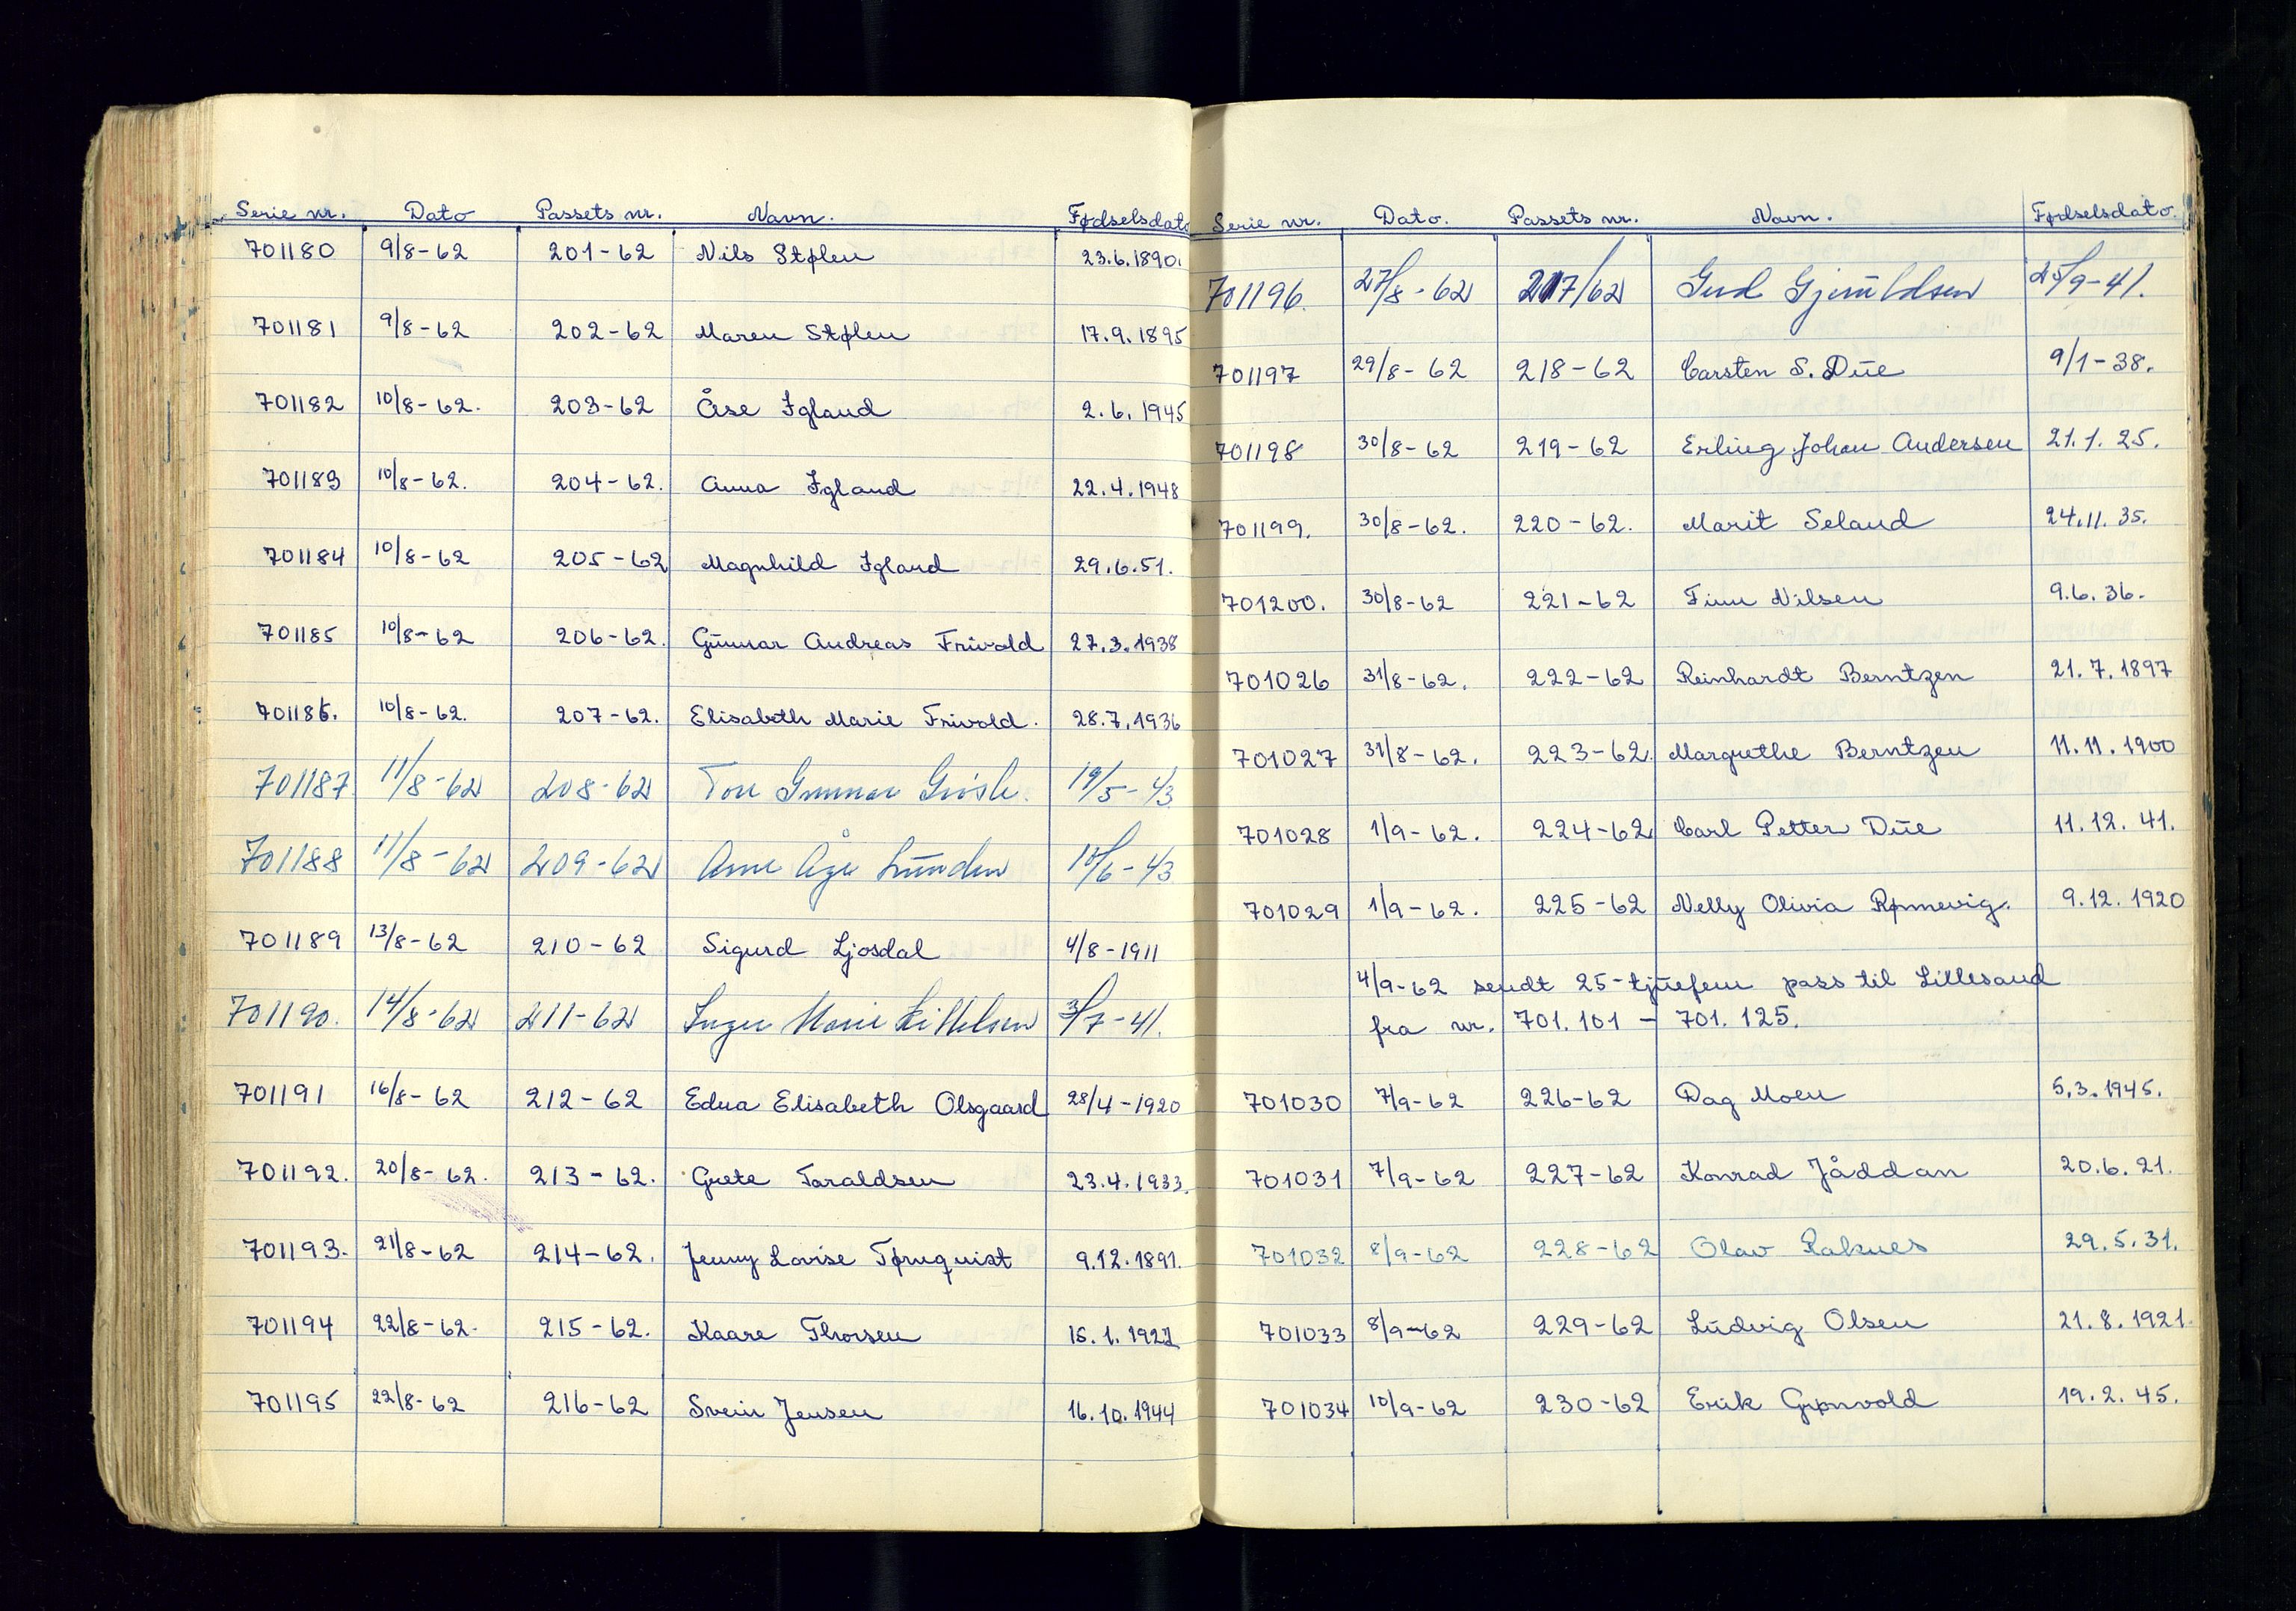 Serie nr. Dato Passets nr. Navn. Fødselsdato
701180 9/8-62 201-62 Nils Stølen 23.6.1890.
701181 9/8-62 202-62 Maren Stølen 17.9.1895
701182 10/8-62. 203-62 Åse Igland 2.6.1945
701183 10/8-62. 204-62. Anna Igland 22.4.1948
701184 10/8-62 205-62 Magnhild Igland 29.6.51.
701185 10/8-62 206-62. Gunnar Andreas Frivold 27.3.1938
701186. 10/8-62. 207-62. Elisabeth Marie Frivold. 28.7.1936
701187 11/8-62 208-62 Tore Gunnar 19/5-43
701188 11/8-62 209-62 Arne Åge Lunden 10/6-43
701189 13/8-62 210-62 Sigurd Ljosdal 4/8-1911
701190. 14/8-62 211-62 Inger Marie Kittelsen 3/7-41.
701191 16/8-62 212-62 Edna Elisabeth Olsgaard 28/4-1920
701192. 20/8-62. 213-62. Grete Taraldsen 23.4.1933.
701193. 21/8-62 214-62. Jenny Lovise Tørnquist 9.12.1891.
701194 22/8-62. 215-62. Kaare Thorsen 15.1.1927
701195 22/8-62 216-62 Svein Jensen 16.10.1944
Serie nr. Dato. Passets nr. Navn. Fødselsdato.
701196. 27/8-62 217/62 Gjeruldsen 25/9-41.
701197 29/8-62 218-62 Carsten S. Due 9/1-38.
701198 30/8-62 219-62 Erling Johan Andersen 21.1.25.
701199. 30/8-62. 220-62. Marit Seland 24.11.35.
701200. 30/8-62 221-62 Finn Nilsen 9.6.36.
701026 31/8-62. 222-62 Reinhardt Berntzen 21.7.1897
701027 31/8-62. 223-62. Margrethe Berntzen 11.11.1900
701028 1/9-62. 224-62 Carl Petter Due 11.12.41.
701029 1/9-62. 225-62 Nelly Olivia Rønnevig. 9.12.1920
4/9-62 sendt 25-tjuefem pass til Lillesand
fra nr. 701.101 - 701.125.
701030 7/9-62 226-62 Dag Moen 5.3.1945.
701031 7/9-62 227-62 Konrad Jåddan 20.6.21.
701032 8/9-62 228-62 Olav Raknes 29.5.31.
701033 8/9-62 229-62 Ludvig Olsen 21.8.1921.
701034 10/9-62 230-62 Erik Grønvold 19.2.45.